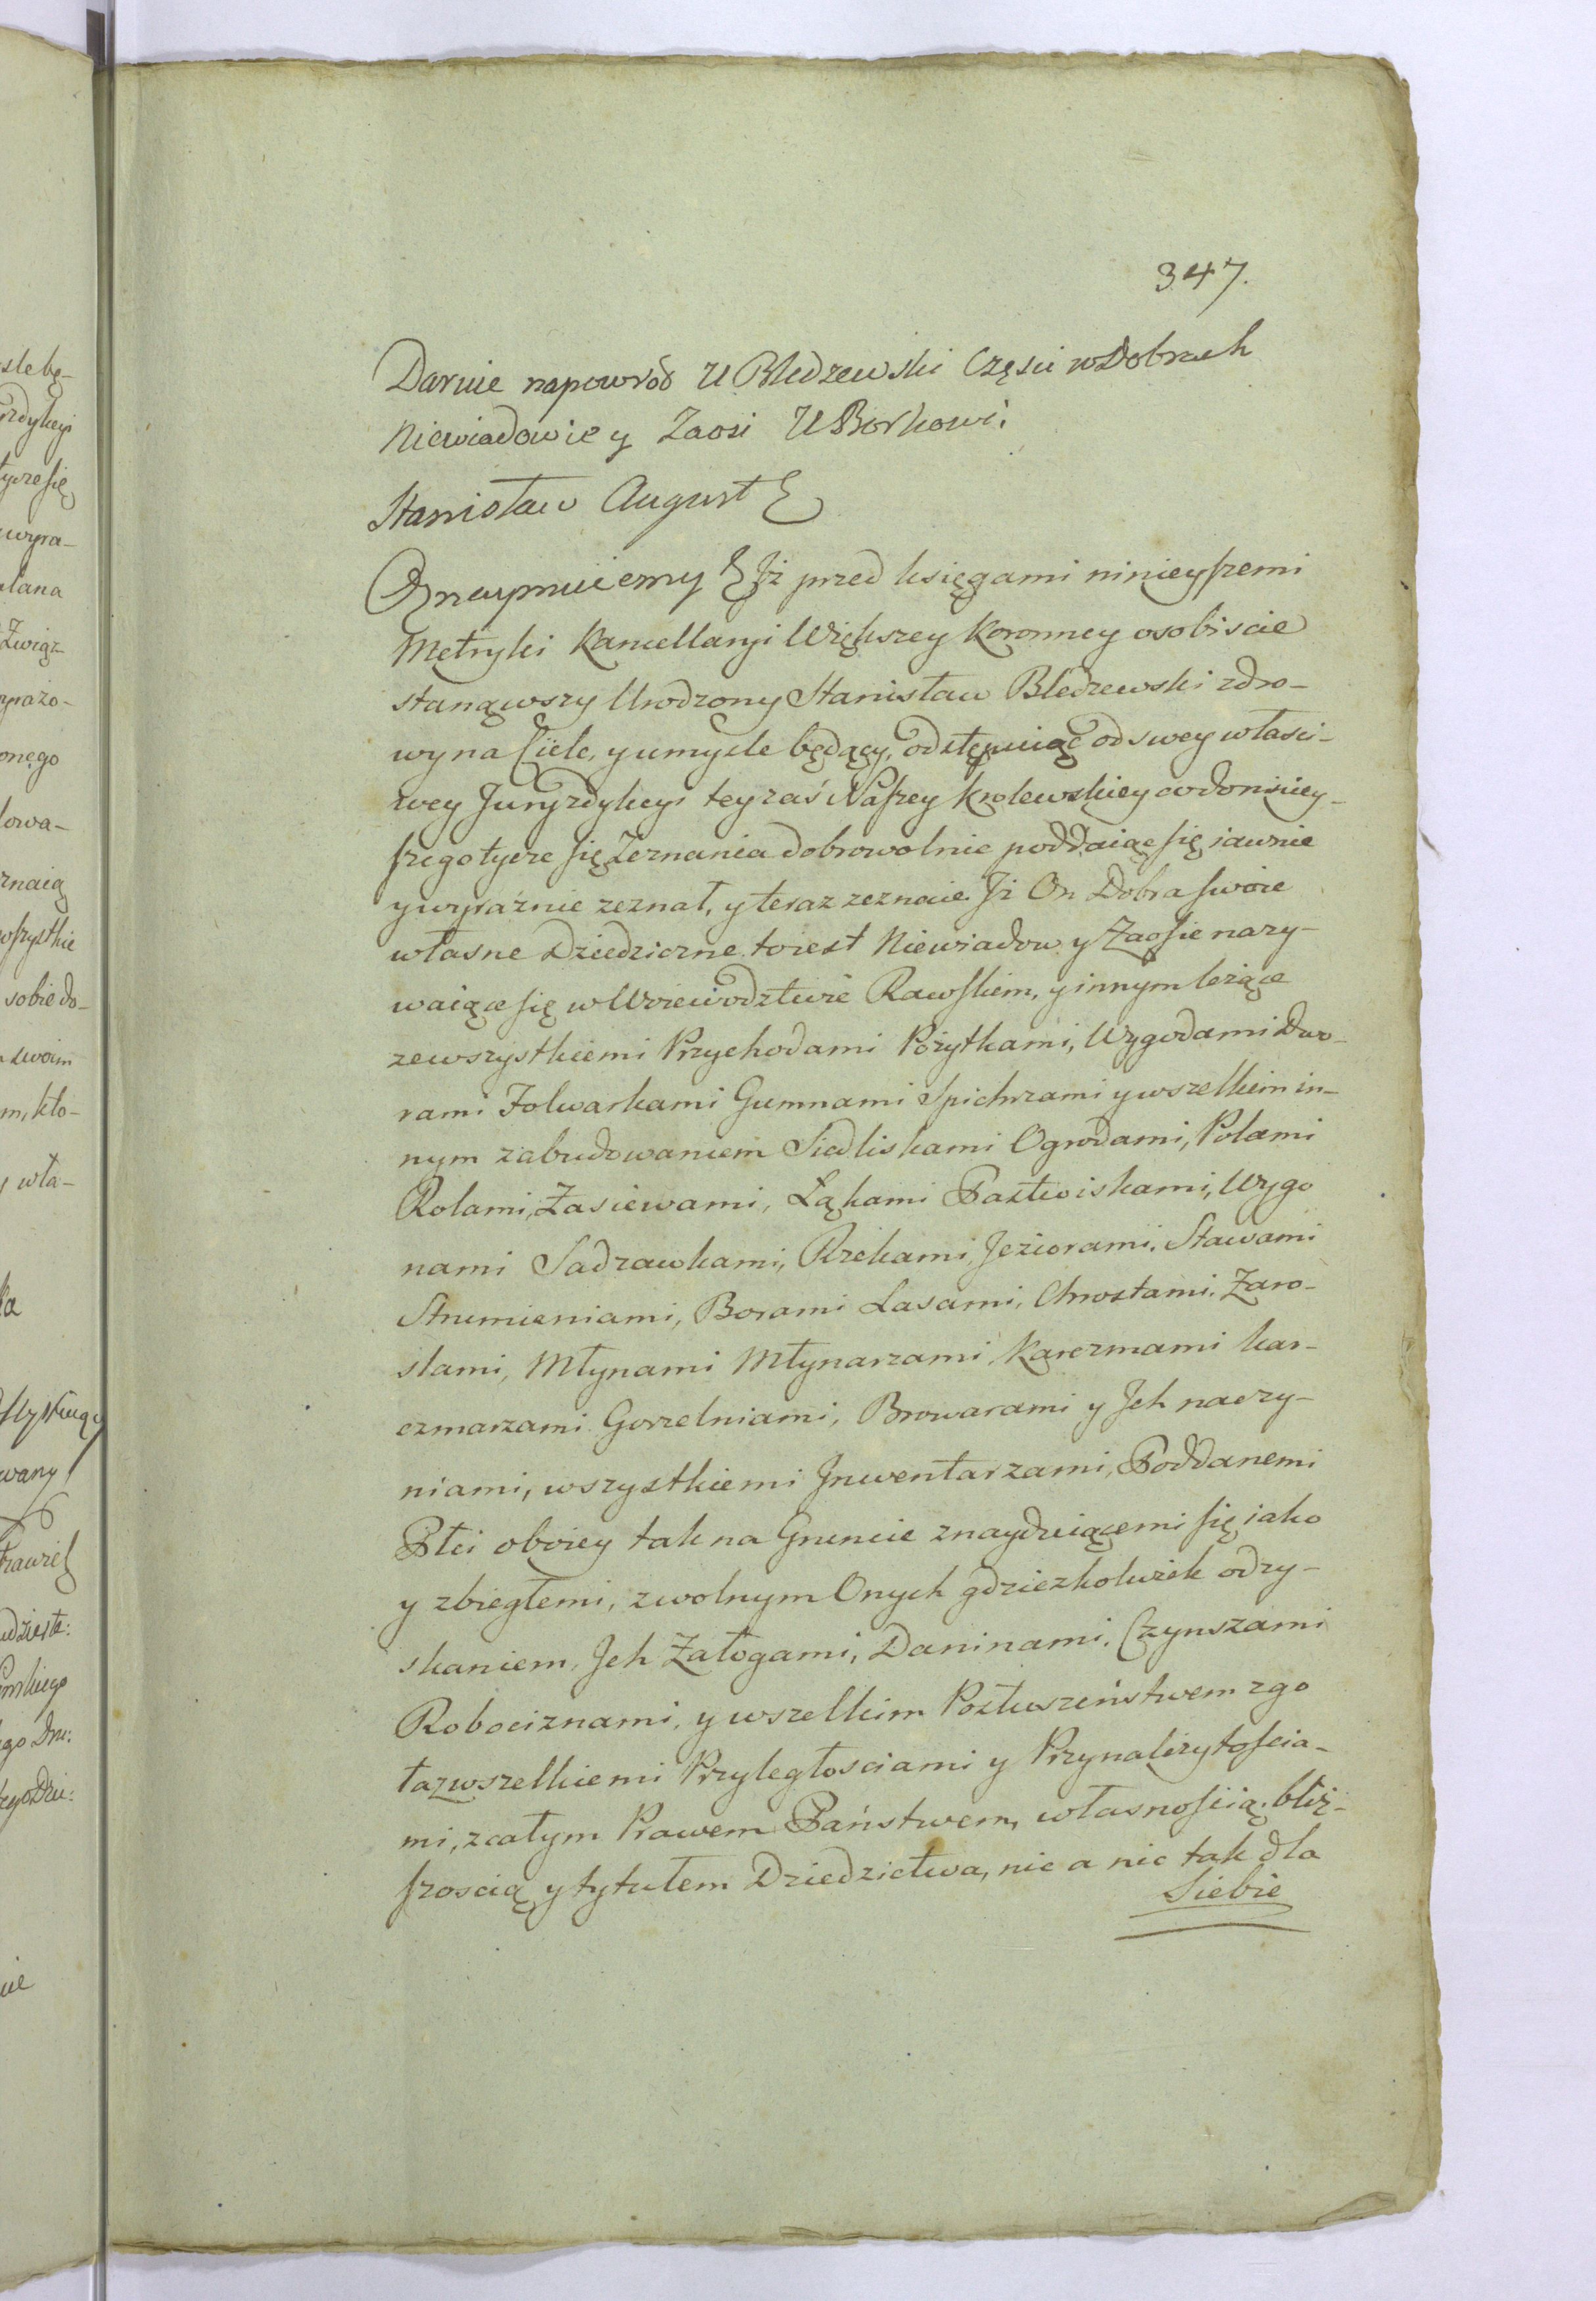 347.
Daruie napowród U Bledzewski Części w Dobrach
Niewiadowie y Zaosi U Borkowi.
Stanisław August
Oznaymuiemy Jż przed księgami ninieyszemi
Metryki Kancellaryi Większey Koronney osobiscie
stanąwszy Urodzony Stanisław Bledzewski zdro-
wy na Ciele, y umysle będący, odstępuiąc od swey własci-
wey Juryzdykcyi tey zaś Naszey Krolewskiey co do niniey-
szego tycze się Zeznania dobrowolnie poddaiąc się iawnie
y wyraźnie zeznał, y teraz zeznaie. Jż On Dobra swoie
własne Dziedziczne to iest Niewiadow y Zaosie nazy-
waiące się w Woiewodztwie Rawskiem, y innym leżące
ze wszystkiemi Przychodami Pożytkami, Wygodami Dwo-
rami Folwarkami Gumnami Spichrzami y wszelkiem in-
nym zabudowaniem Siedliskami Ogrodami, Polami
Rolami, Zasiewami, Łąkami Pastwiskami, Wygo
nami Sadzawkami, Rzekami, Jeziorami, Stawami
Strumieniami, Borami Lasami, Chrostami, Zaro-
slami, Młynami Młynarzami Karczmami kar-
czmarzami Gorzelniami, Browarami y Jch naczy-
niami, wszystkiemi Jnwentarzami, Poddanemi
Płci oboiey tak na Gruncie znayduiącemi się iako
y zbiegłemi, z wolnym Onych gdziezkolwiek odzy-
skaniem, Jch Załogami, Daninami, Czynszami
Robociznami, y wszelkim Posłuszeństwem zgo
ła z wszelkiemi Przyległosciami y Przynależytościa-
mi, z całym Prawem Państwem, własnością, bliż-
szoscią y tytułem Dziedzictwa, nic a nic tak dla
Siebie